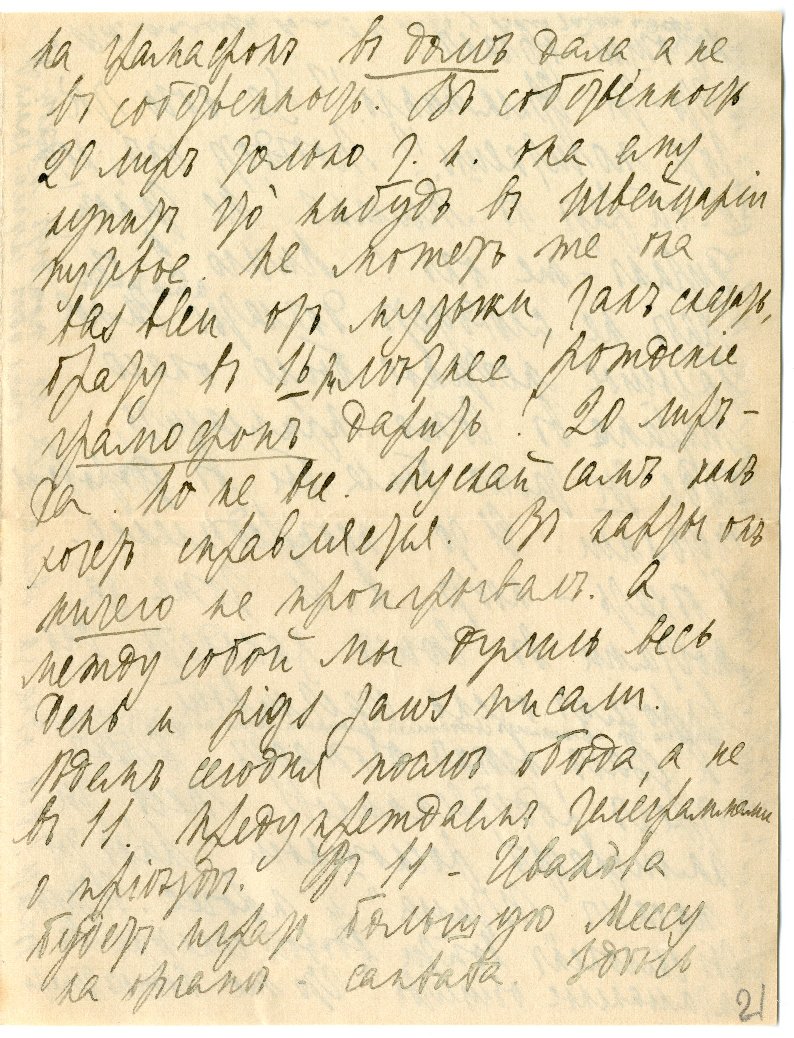 на грамафонъ въ домъ дала а не
въ собственность. Въ собственность
20 лиръ только т. к. она ему
купитъ что нибудь въ Швейцаріи
путное. Не можетъ же она
bas bleu отъ музыки, такъ сказать,
брату въ 16тилѣтнее рожденіе
грамофонъ дарить! 20 лиръ –
да. Но не все. Пускай самъ какъ
хочетъ справляется. Въ карты онъ
ничего не проигрывалъ. А
между собой мы дулись весь
день и pigs jaws писали.
Ѣдемъ сегодня послѣ обѣда, а не
въ 11. Предупреждаемъ телеграммами
о пріѣздѣ. Въ 11 – Иванова
будетъ играть большую Мессу
на органѣ – здѣсь
21